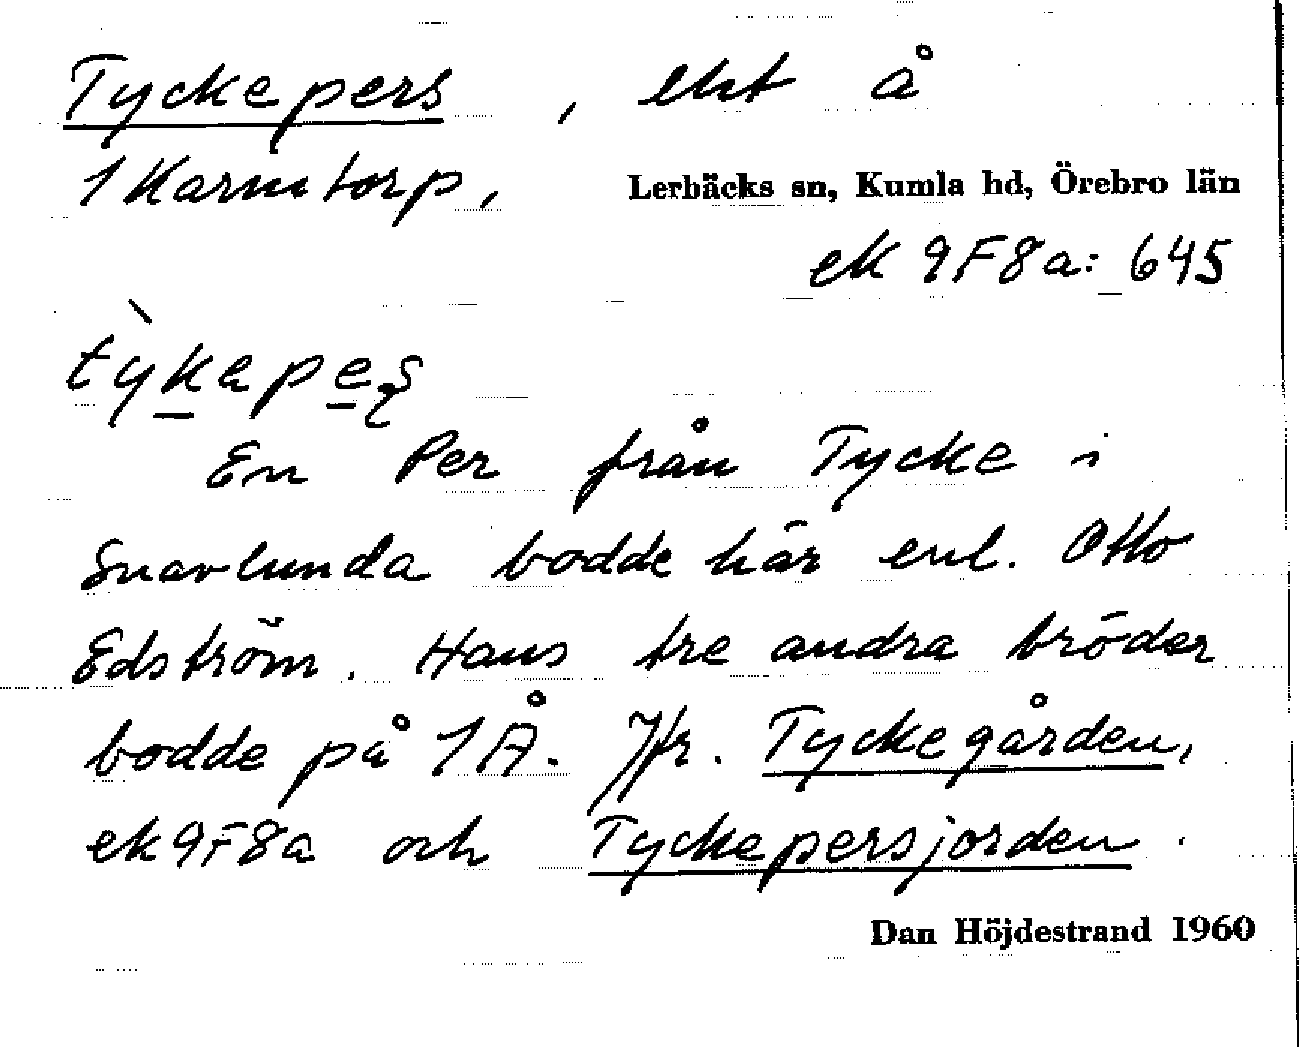 Tyckepers, eht å
1 Karmtorp, Lerbäcks sn, Kumla hd, Örebro län
ek 9F8a: 645
En Per från Tycke i
Snavlunda bodde här enl. Otto
Edström. Hans tre andra bröder
bodde på 1 Å. Jfr. Tyckegården,
ek 9F8a och Tyckepersjorden.
Dan Höjdestrand 1960